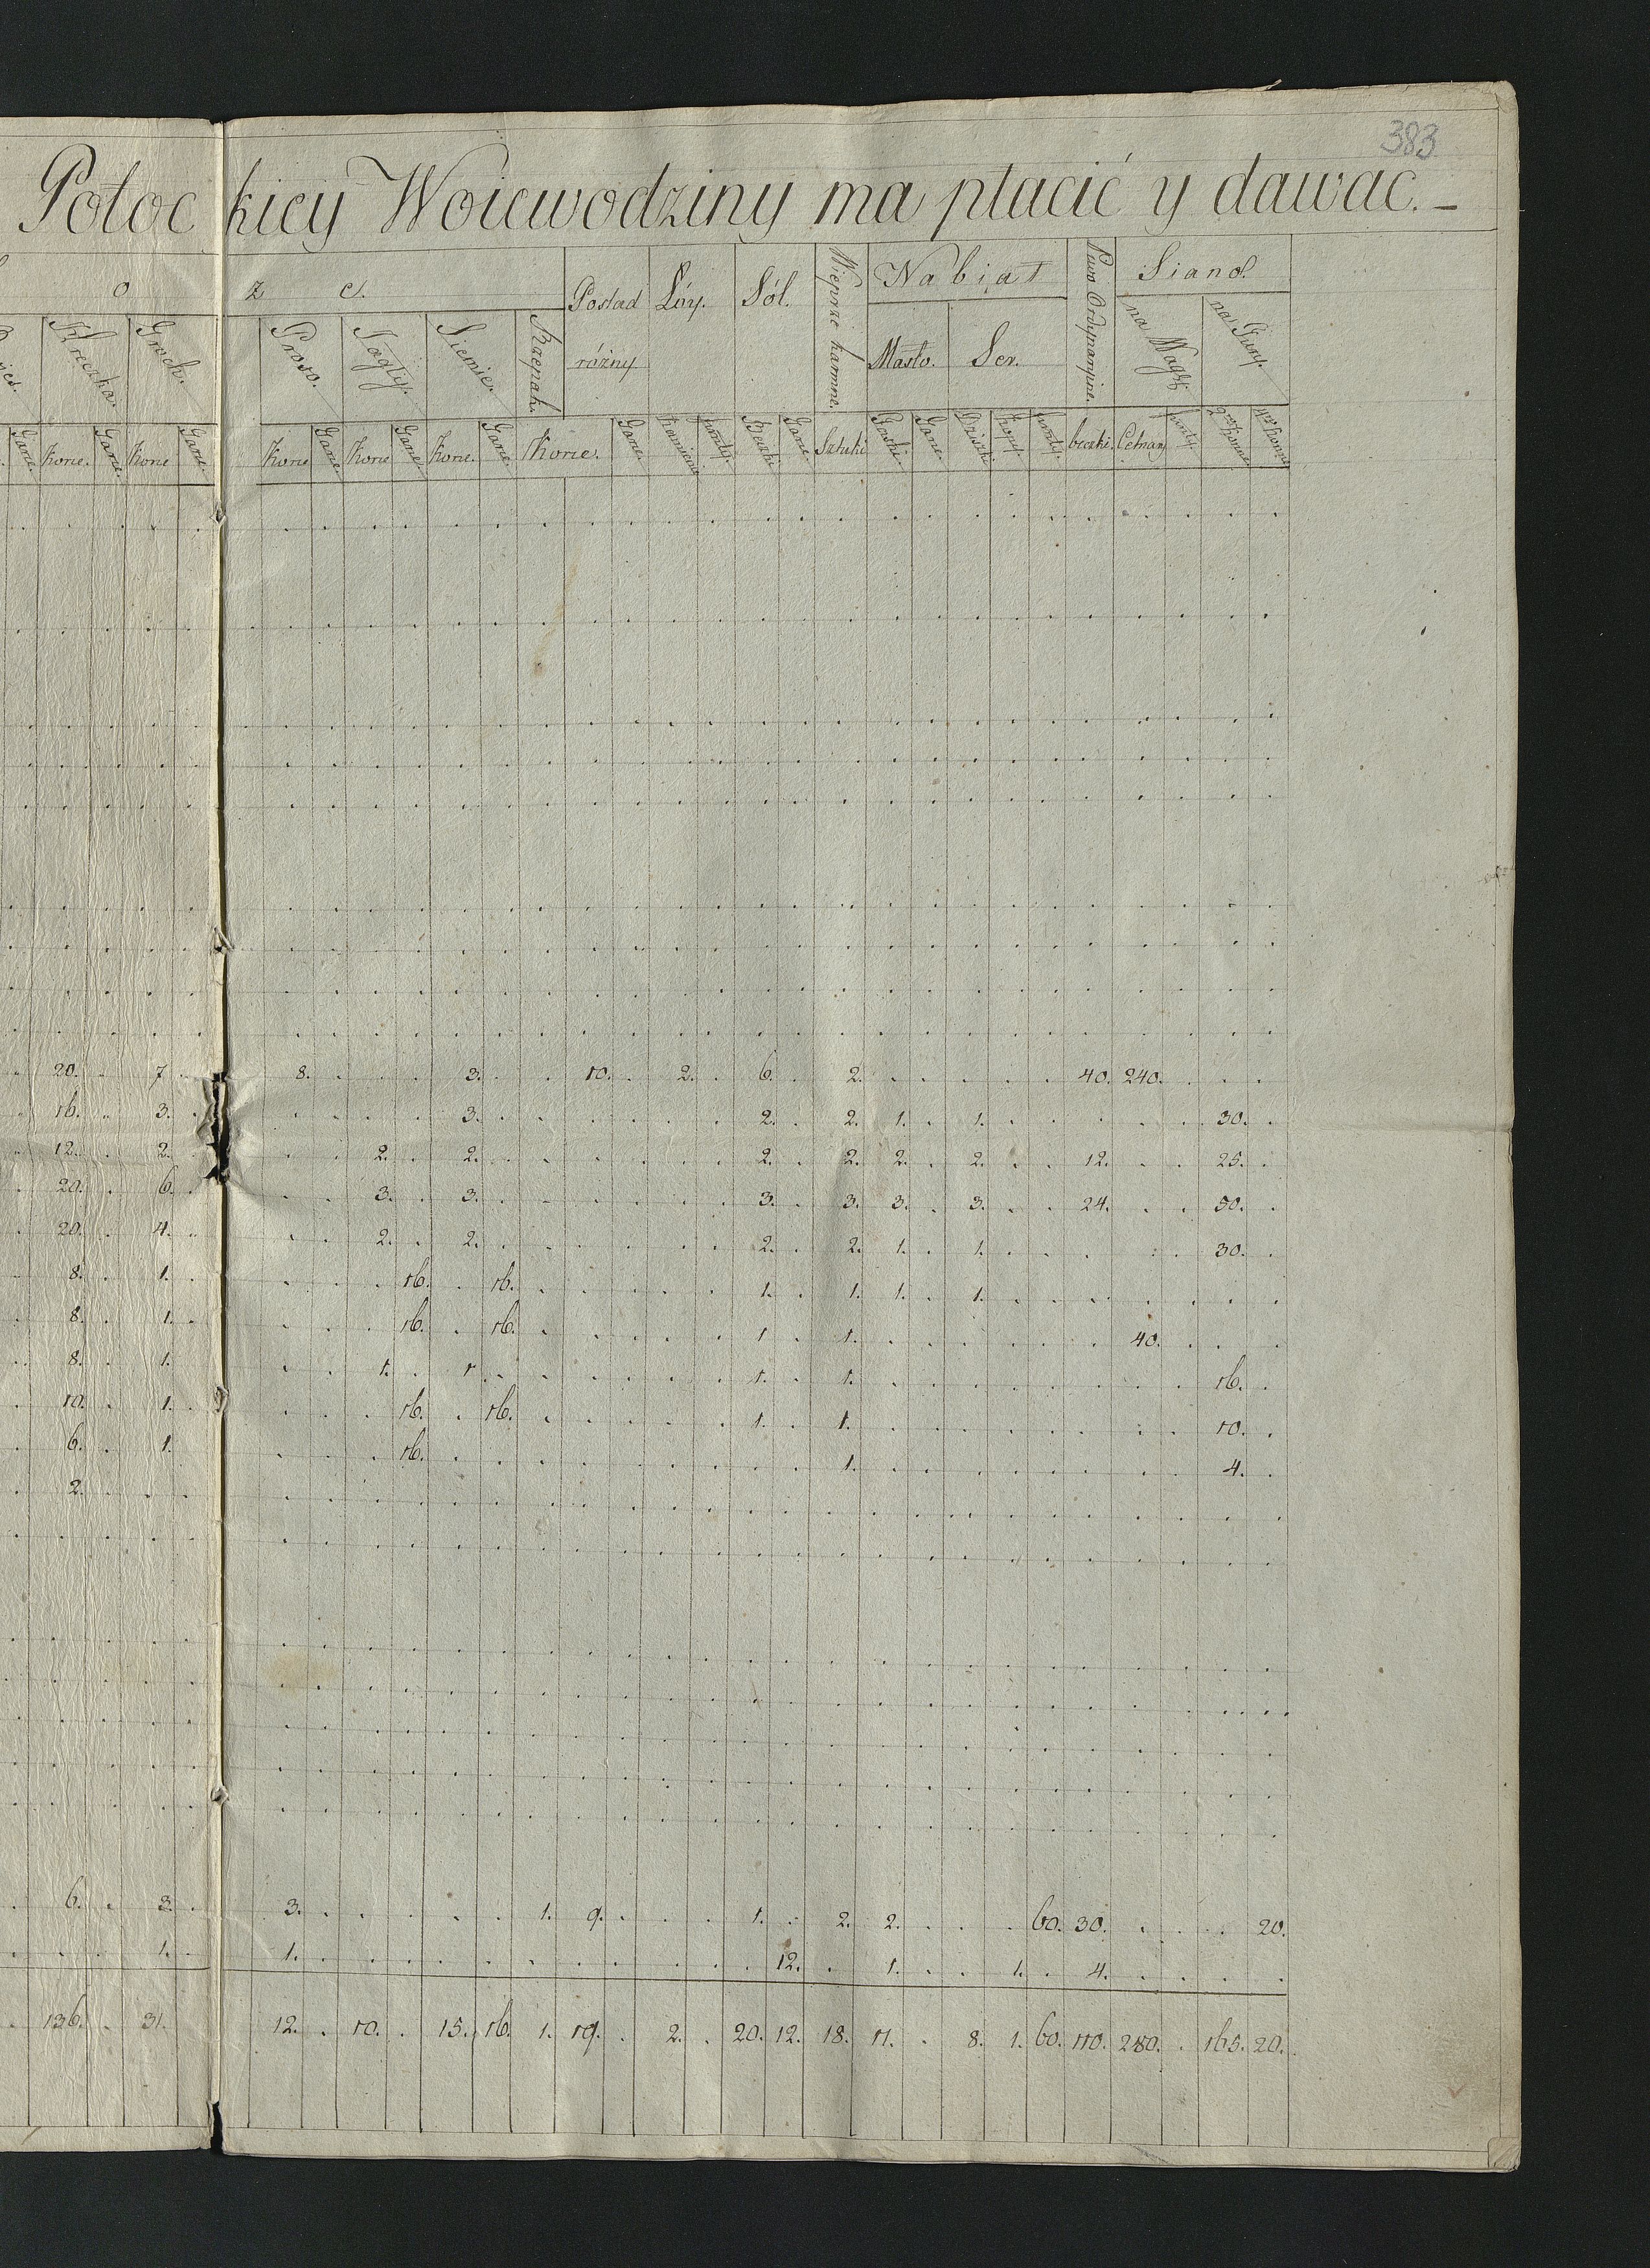 383
Potockiey Woiewodziny ma płacić y dawać.
o z e.
Kreczka. Groch. Proso. Jagły. Siemie. Rzepak. Posład różny Łóy. Sól. Wieprze karmne. Nabiał Piwo Ordynaryine. Siano.
Masło. Ser. na Wagę na Fury.
Garce. Korce. Garce. Korce Garce Korce Garce Korce Garce Korce. Garce. Korce. Garce. Kamienie funty. Beczki Garce Sztuki Garce. Kopy funty. beczki. Cetnary funty. 2ro konne 4ro konne
20. 7. 8. 3. 10. 2. 6. 2. 40. 240.
16. 3. 3. 2. 2. 1. 1. 30.
12. 2. 2. 2. 2. 2. 2. 2. 12. 25.
20. 6. 3. 3. 3. 3. 3. 3. 24. 50.
20. 4. 2. 2. 2. 2. 1. 1. 30.
8. 1. 16. 16. 1. 1. 1. 1.
8. 1. 16. 16. 1. 1. 40.
8. 1. 1. 1. 1. 1. 16.
10. 1. 16. 16. 1. 1. 10.
6. 1. 16. 1. 4.
2.
6. 3. 3. 1. 9. 1. 2. 2. 60. 30. 20.
1. 1. 12. 1. 1. 4.
136. 31. 12. 10. 15. 16. 1. 19. 2. 20. 12. 18. 11. 8. 1. 60. 110. 280. 165. 20.